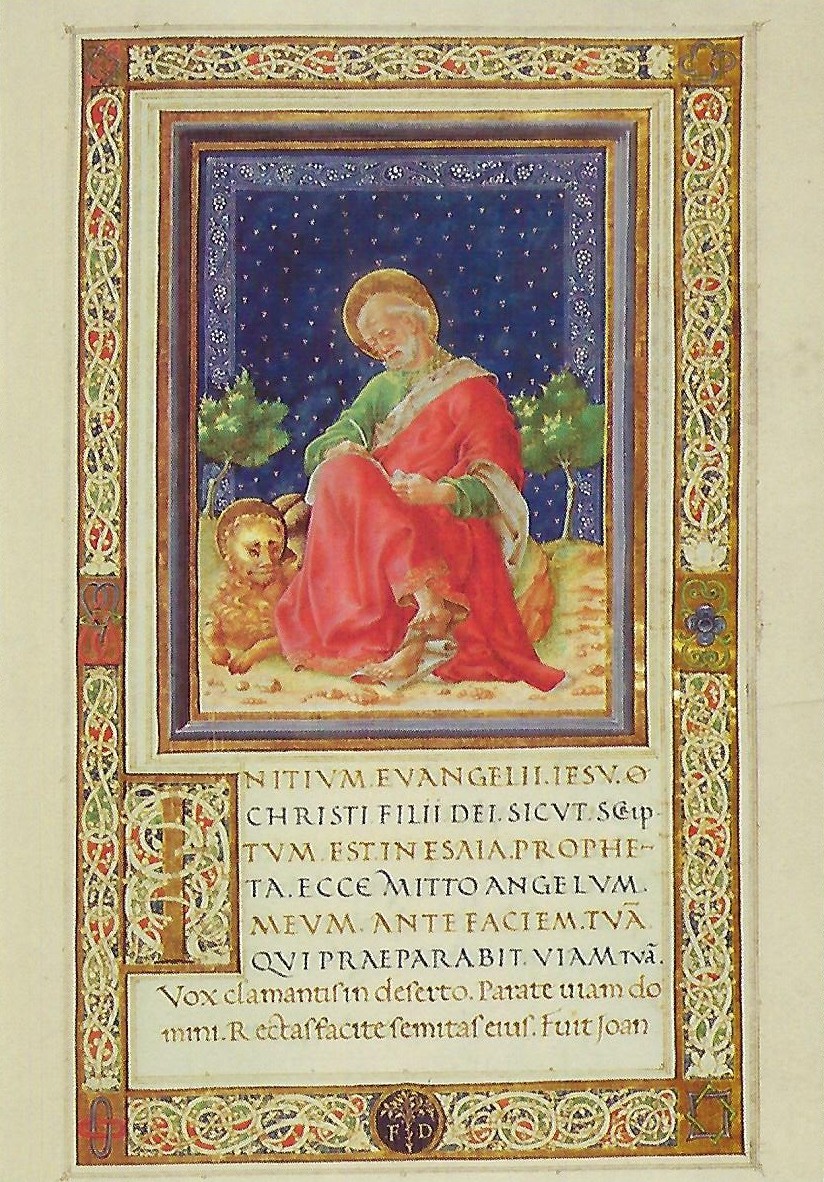 INITIVM.EVANGELII.IESV.
CHRISTI FILII DEI.SICVT.SCRIP-
TVM.EST.IN ESAIA.PROPHE-
TA.ECCE MITTO ANGELVM.
MEVM.ANTE FACIEM.TVÃ
QVI PRAEPARABIT.VIAM TVÃ.
Vox clamantis in deserto. Parate uiam do
mini. Rectas facite semitas eius. Fuit Joan
F D